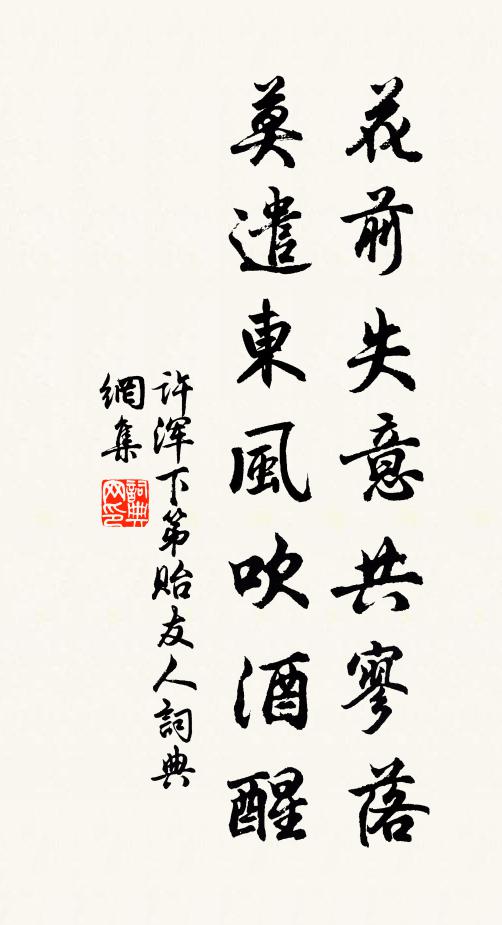 花前失意共寥落
莫遣東風吹酒醒
许浑下第贻友人詞典
網集
詞典網印